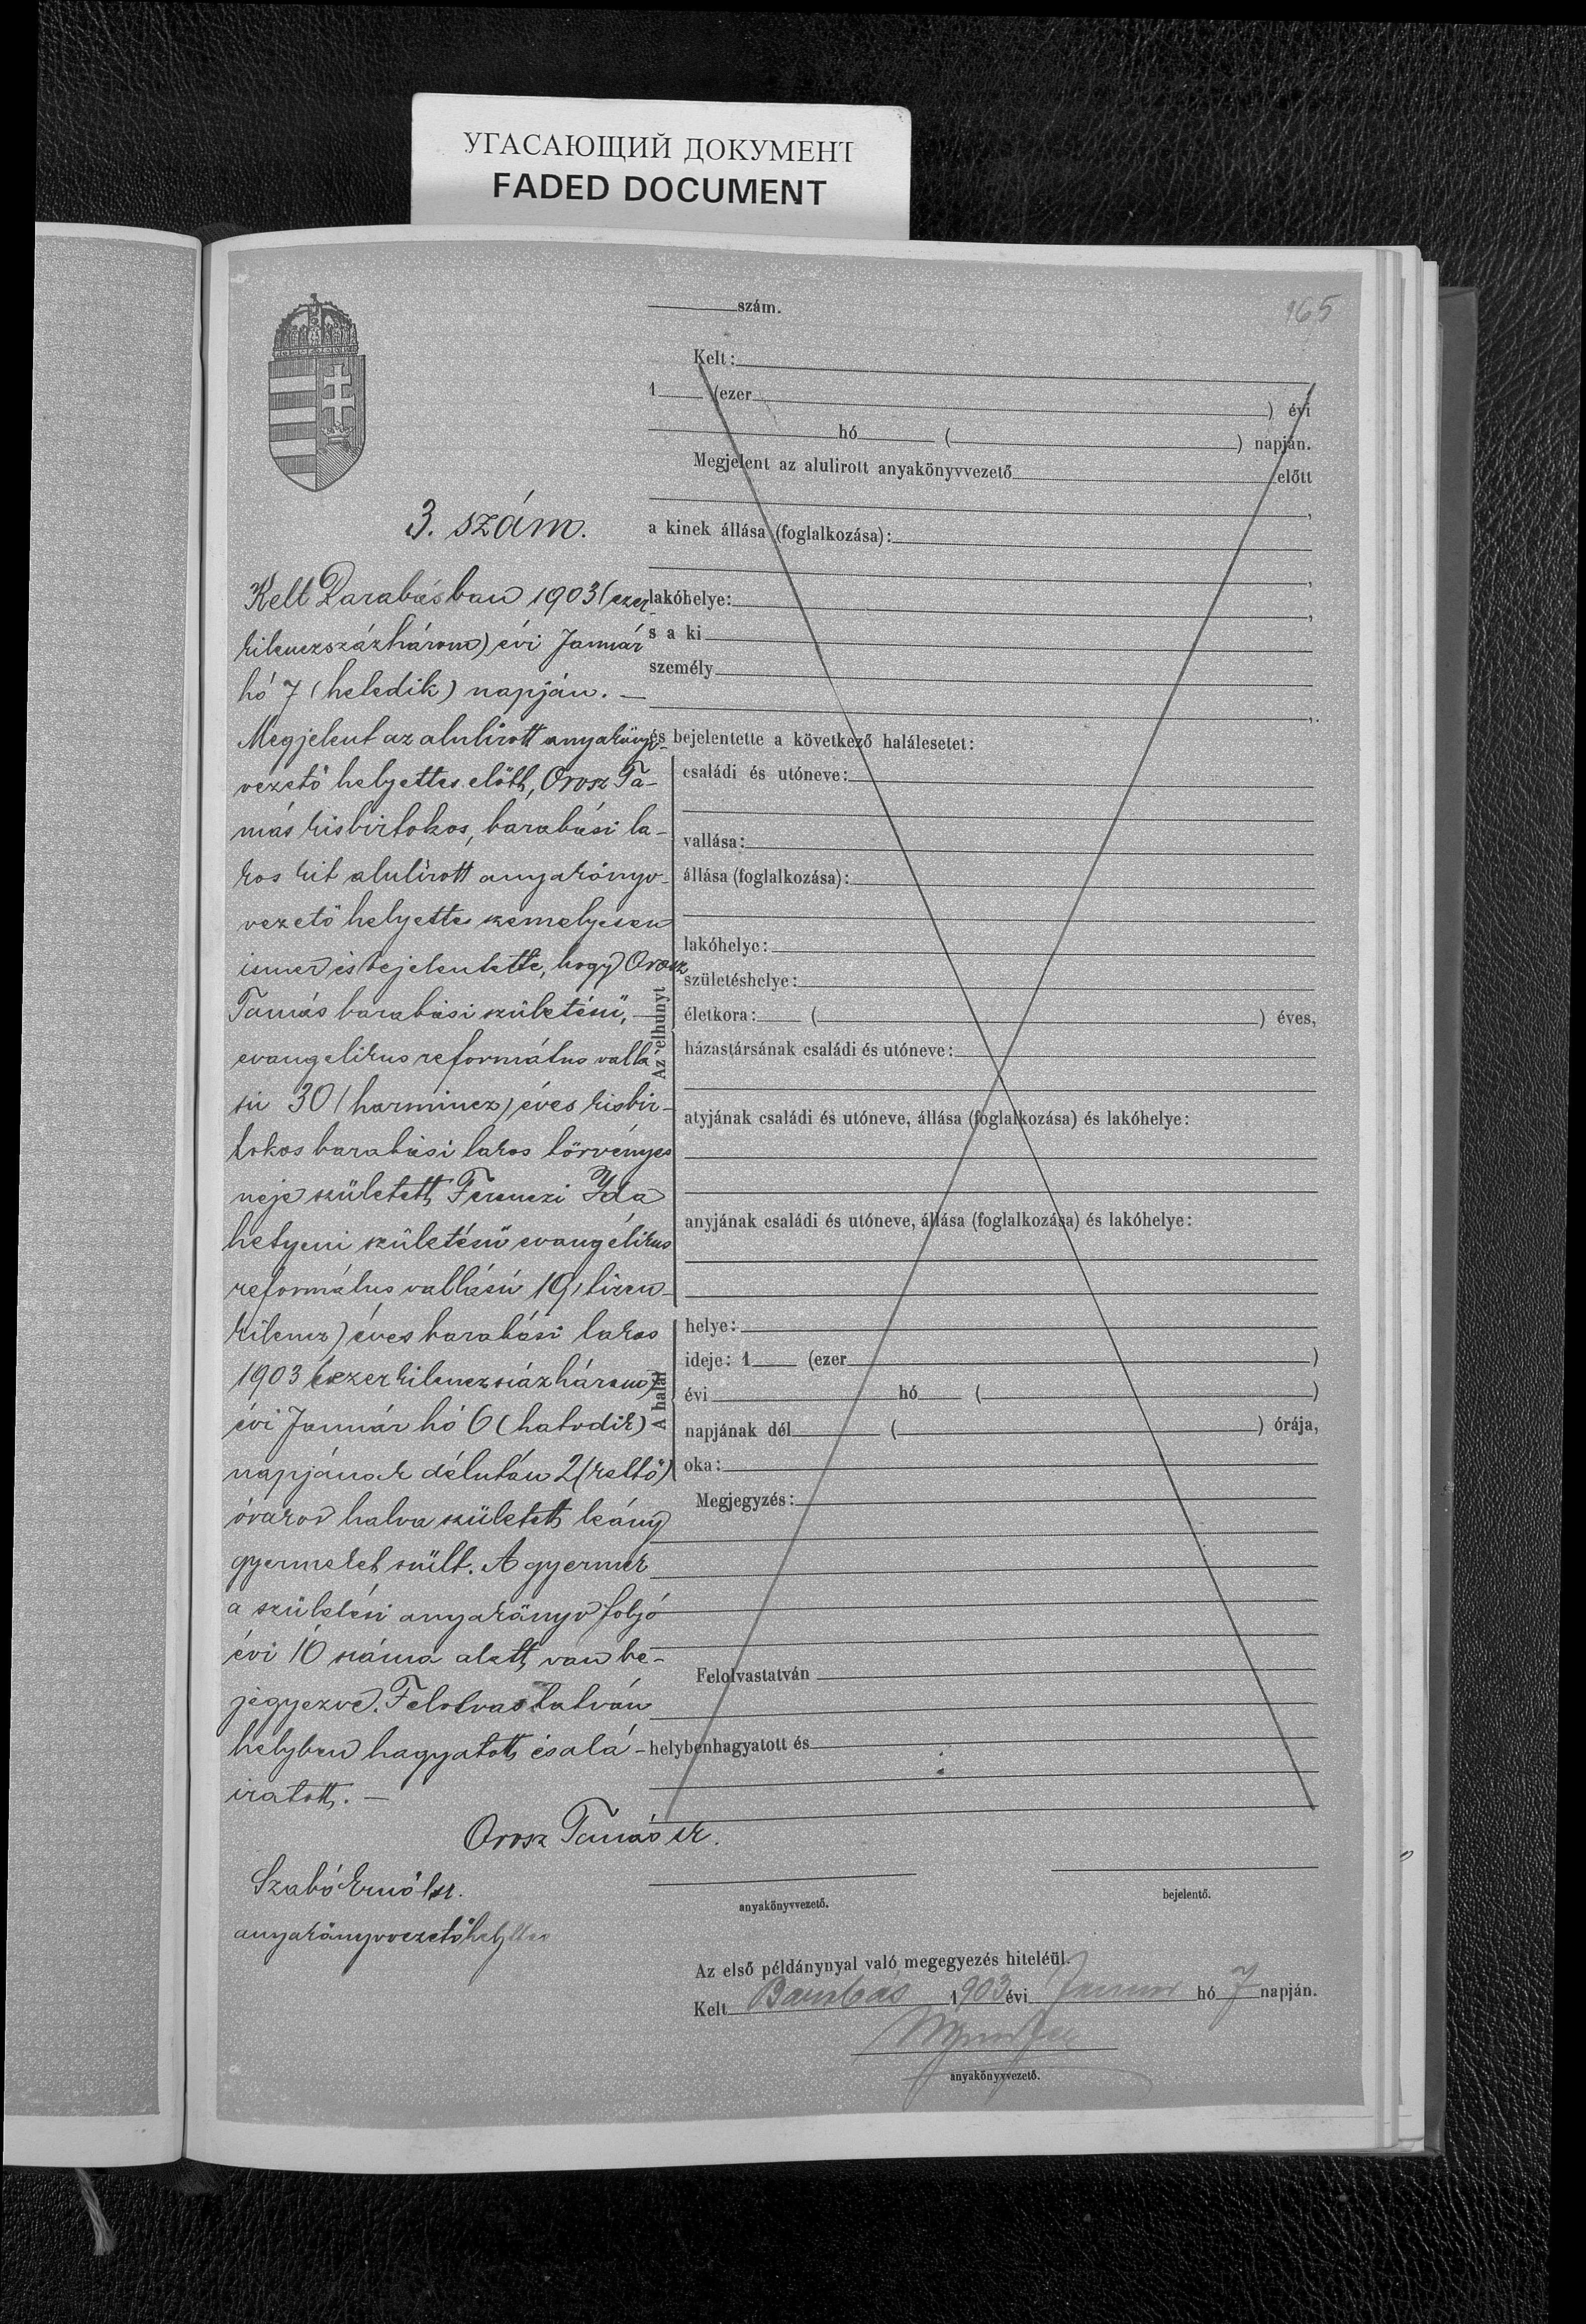 УГАСАЮЩИЙ ДОКУМЕНТ
FADED DOCUMENT
165
szám.
Kelt:
1 (ezer ) évi
hó ( ) napján.
Megjelent az alulirott anyakönyvvezető előtt
a kinek állása (foglalkozása):
lakóhelye:
s a ki
személy
és bejelentette a következő halálesetet:
Az elhunyt
családi és utóneve:
vallása:
állása (foglalkozása):
lakóhelye:
születéshelye:
életkora: ( ) éves,
házastársának családi és utóneve:
atyjának családi és utóneve, állása (foglalkozása) és lakóhelye:
anyjának családi és utóneve, állása (foglalkozása) és lakóhelye:
A halál
helye:
ideje: 1 (ezer )
évi hó ( )
napjának dél ( ) órája,
oka:
Megjegyzés:
Felolvastatván
helybenhagyatott és
anyakönyvvezető.
bejelentő.
3. szám.
Kelt Barabásban 1903 (ezer
kilenczszázhárom) évi Január
hó 7 (hetedik) napján. —
Megjelent az alulirott anyakönyv-
vezető helyettes előtt, Orosz Ta-
más kisbirtokos, barabási la-
kos kit alulirott anyakönyv-
vezető helyettes személyesen
ismer és bejelentette, hogy Orosz
Tamás barabási születésü, —
evangelikus református vallá
sú 30 (harmincz) éves kisbir-
tokos barabási lakos törvényes
neje született Ferenczi Ida
hetyeni születésü evangélikus
református vallású 19 (tizen-
kilencz) éves barabási lakos
1903 (ezerkilenczszázhárom)
évi Január hó 6 (hatodik)
napjának délután 2 (kettő)
órakor halva született leány
gyermeket szült. A gyermek
a születési anyakönyv folyó
évi 10 száma alatt van be-
jegyezve. Felolvastatván
helyben hagyatott és alá-
iratott. —
Orosz Tamás sk.
Szabó Ernő sk.
anyakönyvvezető helyettes
Az első példánynyal való megegyezés hiteléül.
Kelt Barabás 1903 évi Január hó 7 napján.
anyakönyvvezető.